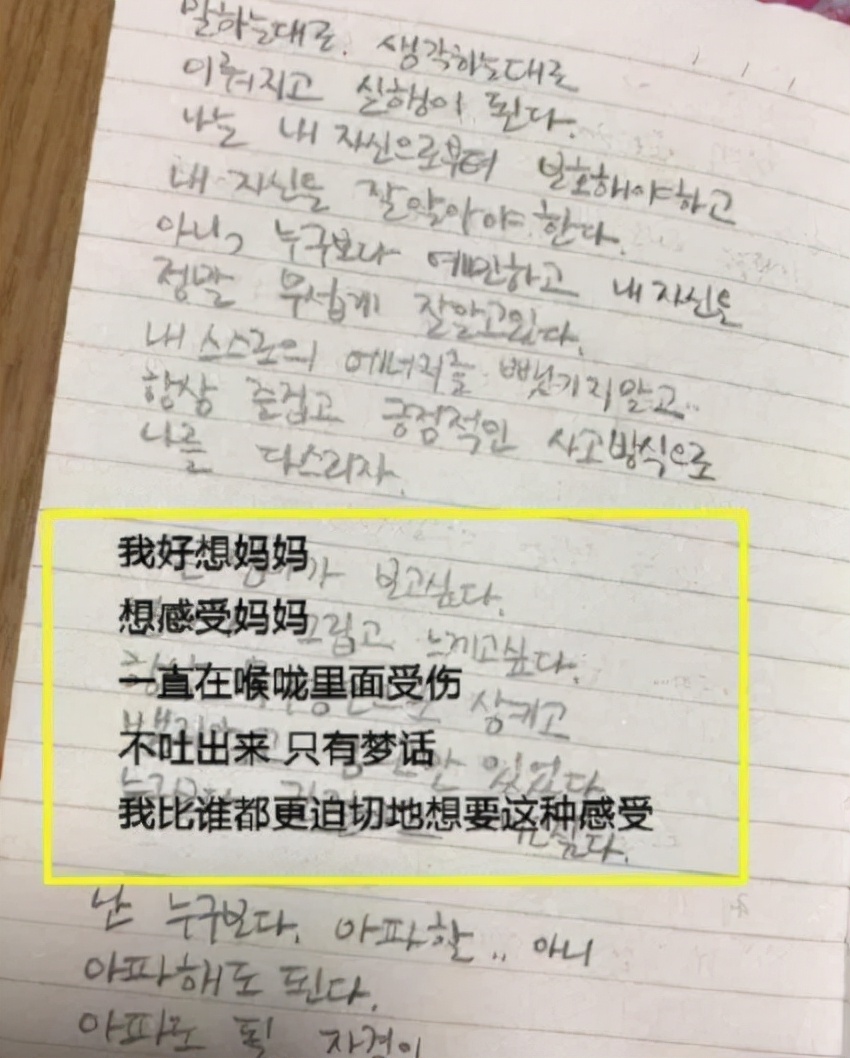 말하는대로. 생각하는대로
이뤄지고 실행이 된다.
나는 내 자신으로부터 보호해야하고
내 자신을 잘 알아야 한다.
아니, 누구보다 예민하고 내 자신을
정말 무섭게 잘알고있다.
내 스스로의 에너지를 뺏기지말고..
항상 즐겁고 긍정적인 사고방식으로
나를 다스리자.
我好想妈妈
가 보고싶다.
想感受妈妈
그립고 느끼고싶다.
一直在喉咙里面受伤
삼키고
不吐出来 只有梦话
있었다.
我比谁都更迫切地想要这种感受
싶다.
난 누구보다. 아파할.. 아니
아파해도 된다.
아파도 될 자격이